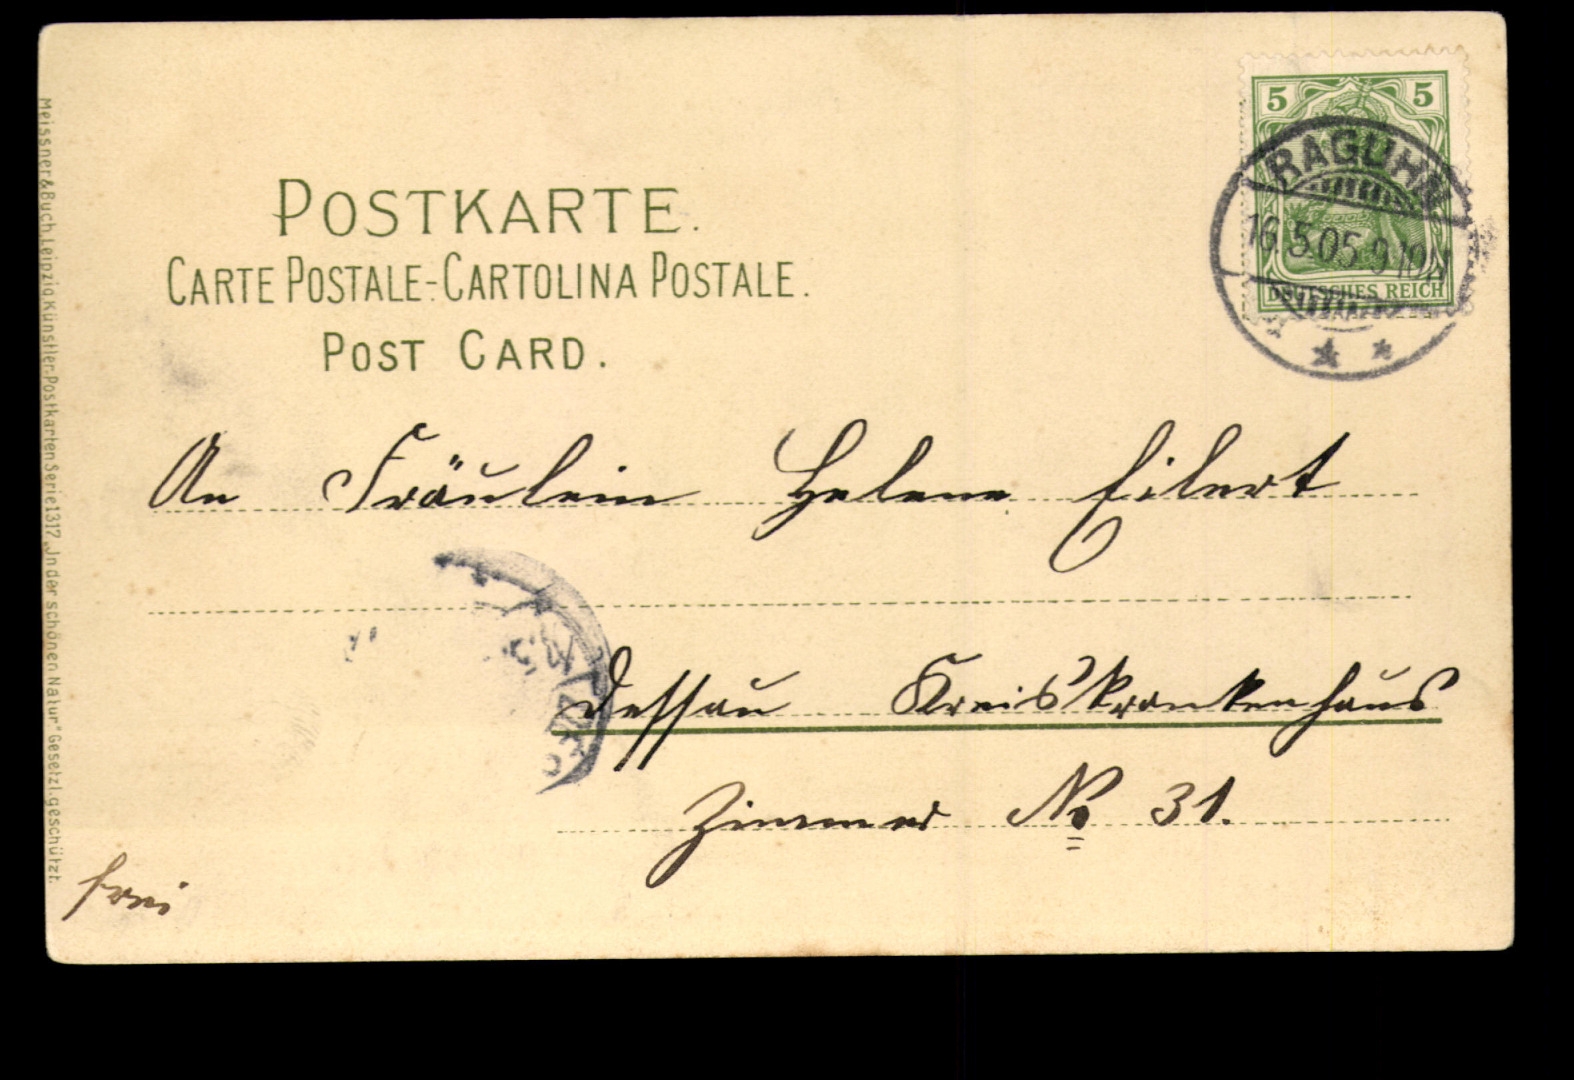 POSTKARTE.
CARTE POSTALE-CARTOLINA POSTALE.
POST CARD.
5 5
DEUTSCHES REICH
RAGUHN
16.5.05.9-10N
An Fräulein Helene Eilert
Dessau Kreiskrankenhaus
Zimmer No 31.
frei
Meissner & Buch, Leipzig, Künstler-Postkarten Serie 1317 „In der schönen Natur." Gesetzl. geschützt.